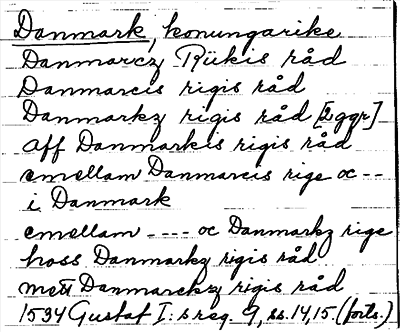 Danmark, konungarike
Danmarcz Riikis råd
Danmarcis rigis råd
Danmarkz rigis råd [2 ggr]
aff Danmarkis rigis råd
emellam Danmarcis rige oc --
i Danmark
emellam ---- oc Danmarkz rige
hoss Danmarkz rigis råd
mett Danmarckz rigis råd
1534 Gustaf I:s reg. 9, ss. 14, 15. (forts.)